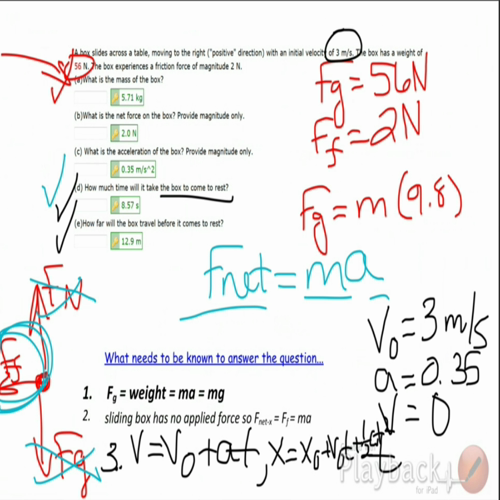 A box slides across a table, moving to the right ("positive" direction) with an initial velocity of 3 m/s. The box has a weight of
56 N. The box experiences a friction force of magnitude 2 N.
(a)What is the mass of the box?
5.71 kg
(b)What is the net force on the box? Provide magnitude only.
2.0 N
(c) What is the acceleration of the box? Provide magnitude only.
0.35 m/s^2
(d) How much time will it take the box to come to rest?
8.57 s
(e)How far will the box travel before it comes to rest?
12.9 m
Fg = 56N
Ff = 2N
Fg = m(9.8)
Fnet = ma
FN
Ff
Fg
V0 = 3m/s
a = 0.35
V = 0
What needs to be known to answer the question...
1. Fg = weight = ma = mg
2. sliding box has no applied force so Fnet-x = Ff = ma
3. V = V0 + at, X = X0 + V0t + 1/2at²
Playback
for iPad